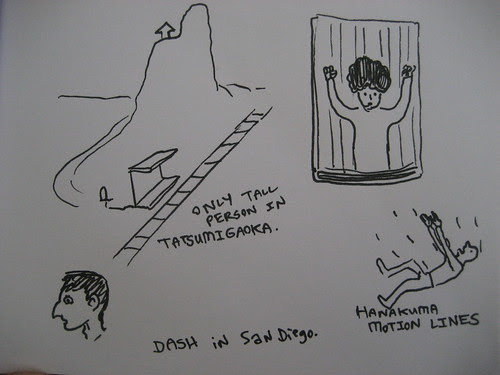 ONLY TALL
PERSON IN
TATSUMIGAOKA.
HANAKUMA
MOTION LINES
DASH iN SanDiego.